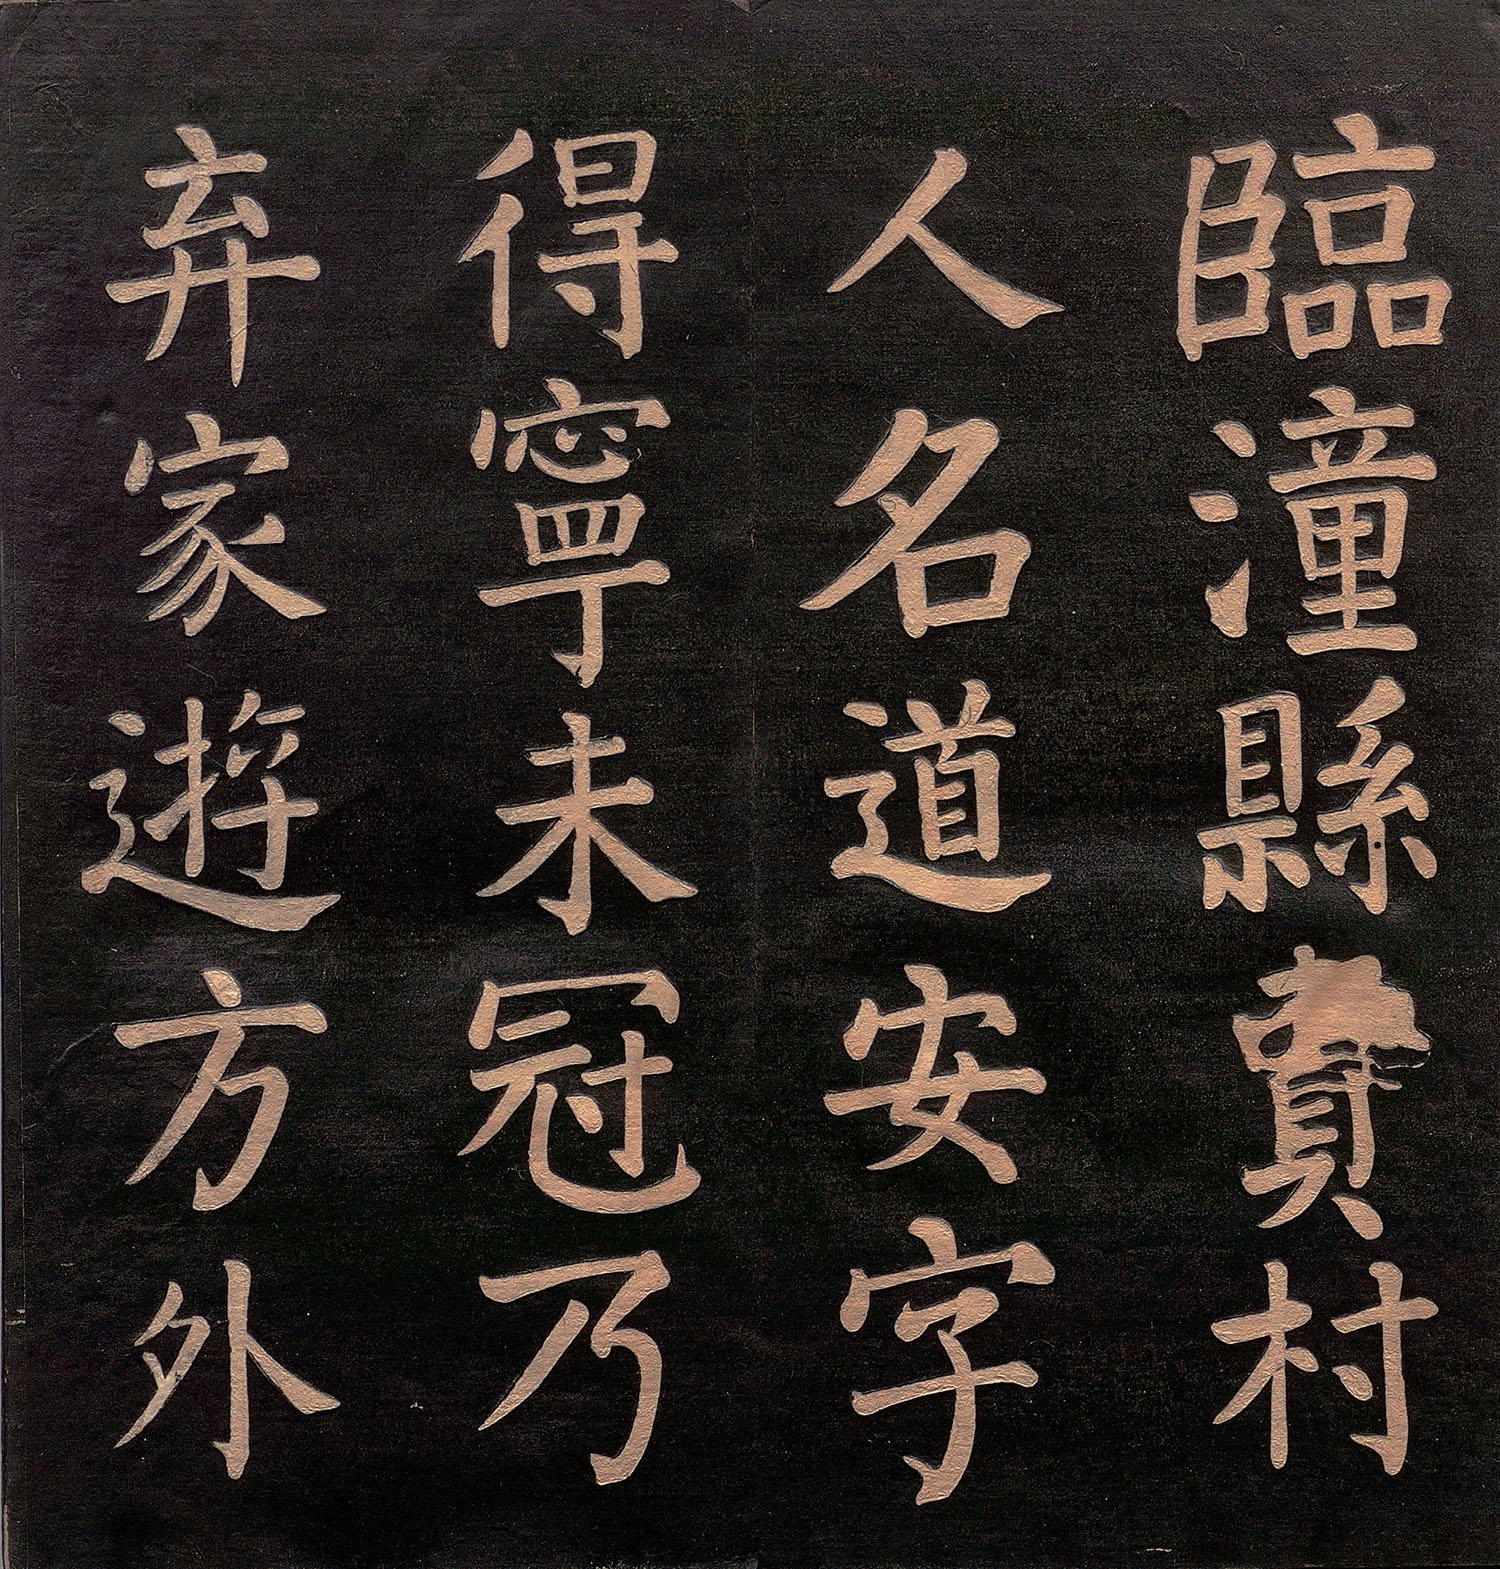 臨潼縣費村
人名道安字
得寧未冠乃
弃家遊方外